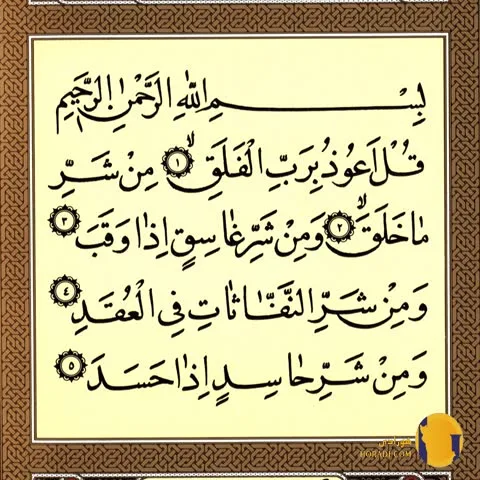 بِسْمِ اللّٰهِ الرَّحْمٰنِ الرَّحٖيمِ
قُلْ اَعُوذُ بِرَبِّ الْفَلَقِۙ ﴿١﴾ مِنْ شَرِّ
مَا خَلَقَۙ ﴿٢﴾ وَمِنْ شَرِّ غَاسِقٍ اِذَا وَقَبَ ﴿٣﴾
وَمِنْ شَرِّ النَّفَّاثَاتِ فِى الْعُقَدِ ﴿٤﴾
وَمِنْ شَرِّ حَاسِدٍ اِذَا حَسَدَ ﴿٥﴾
MORADI.COM